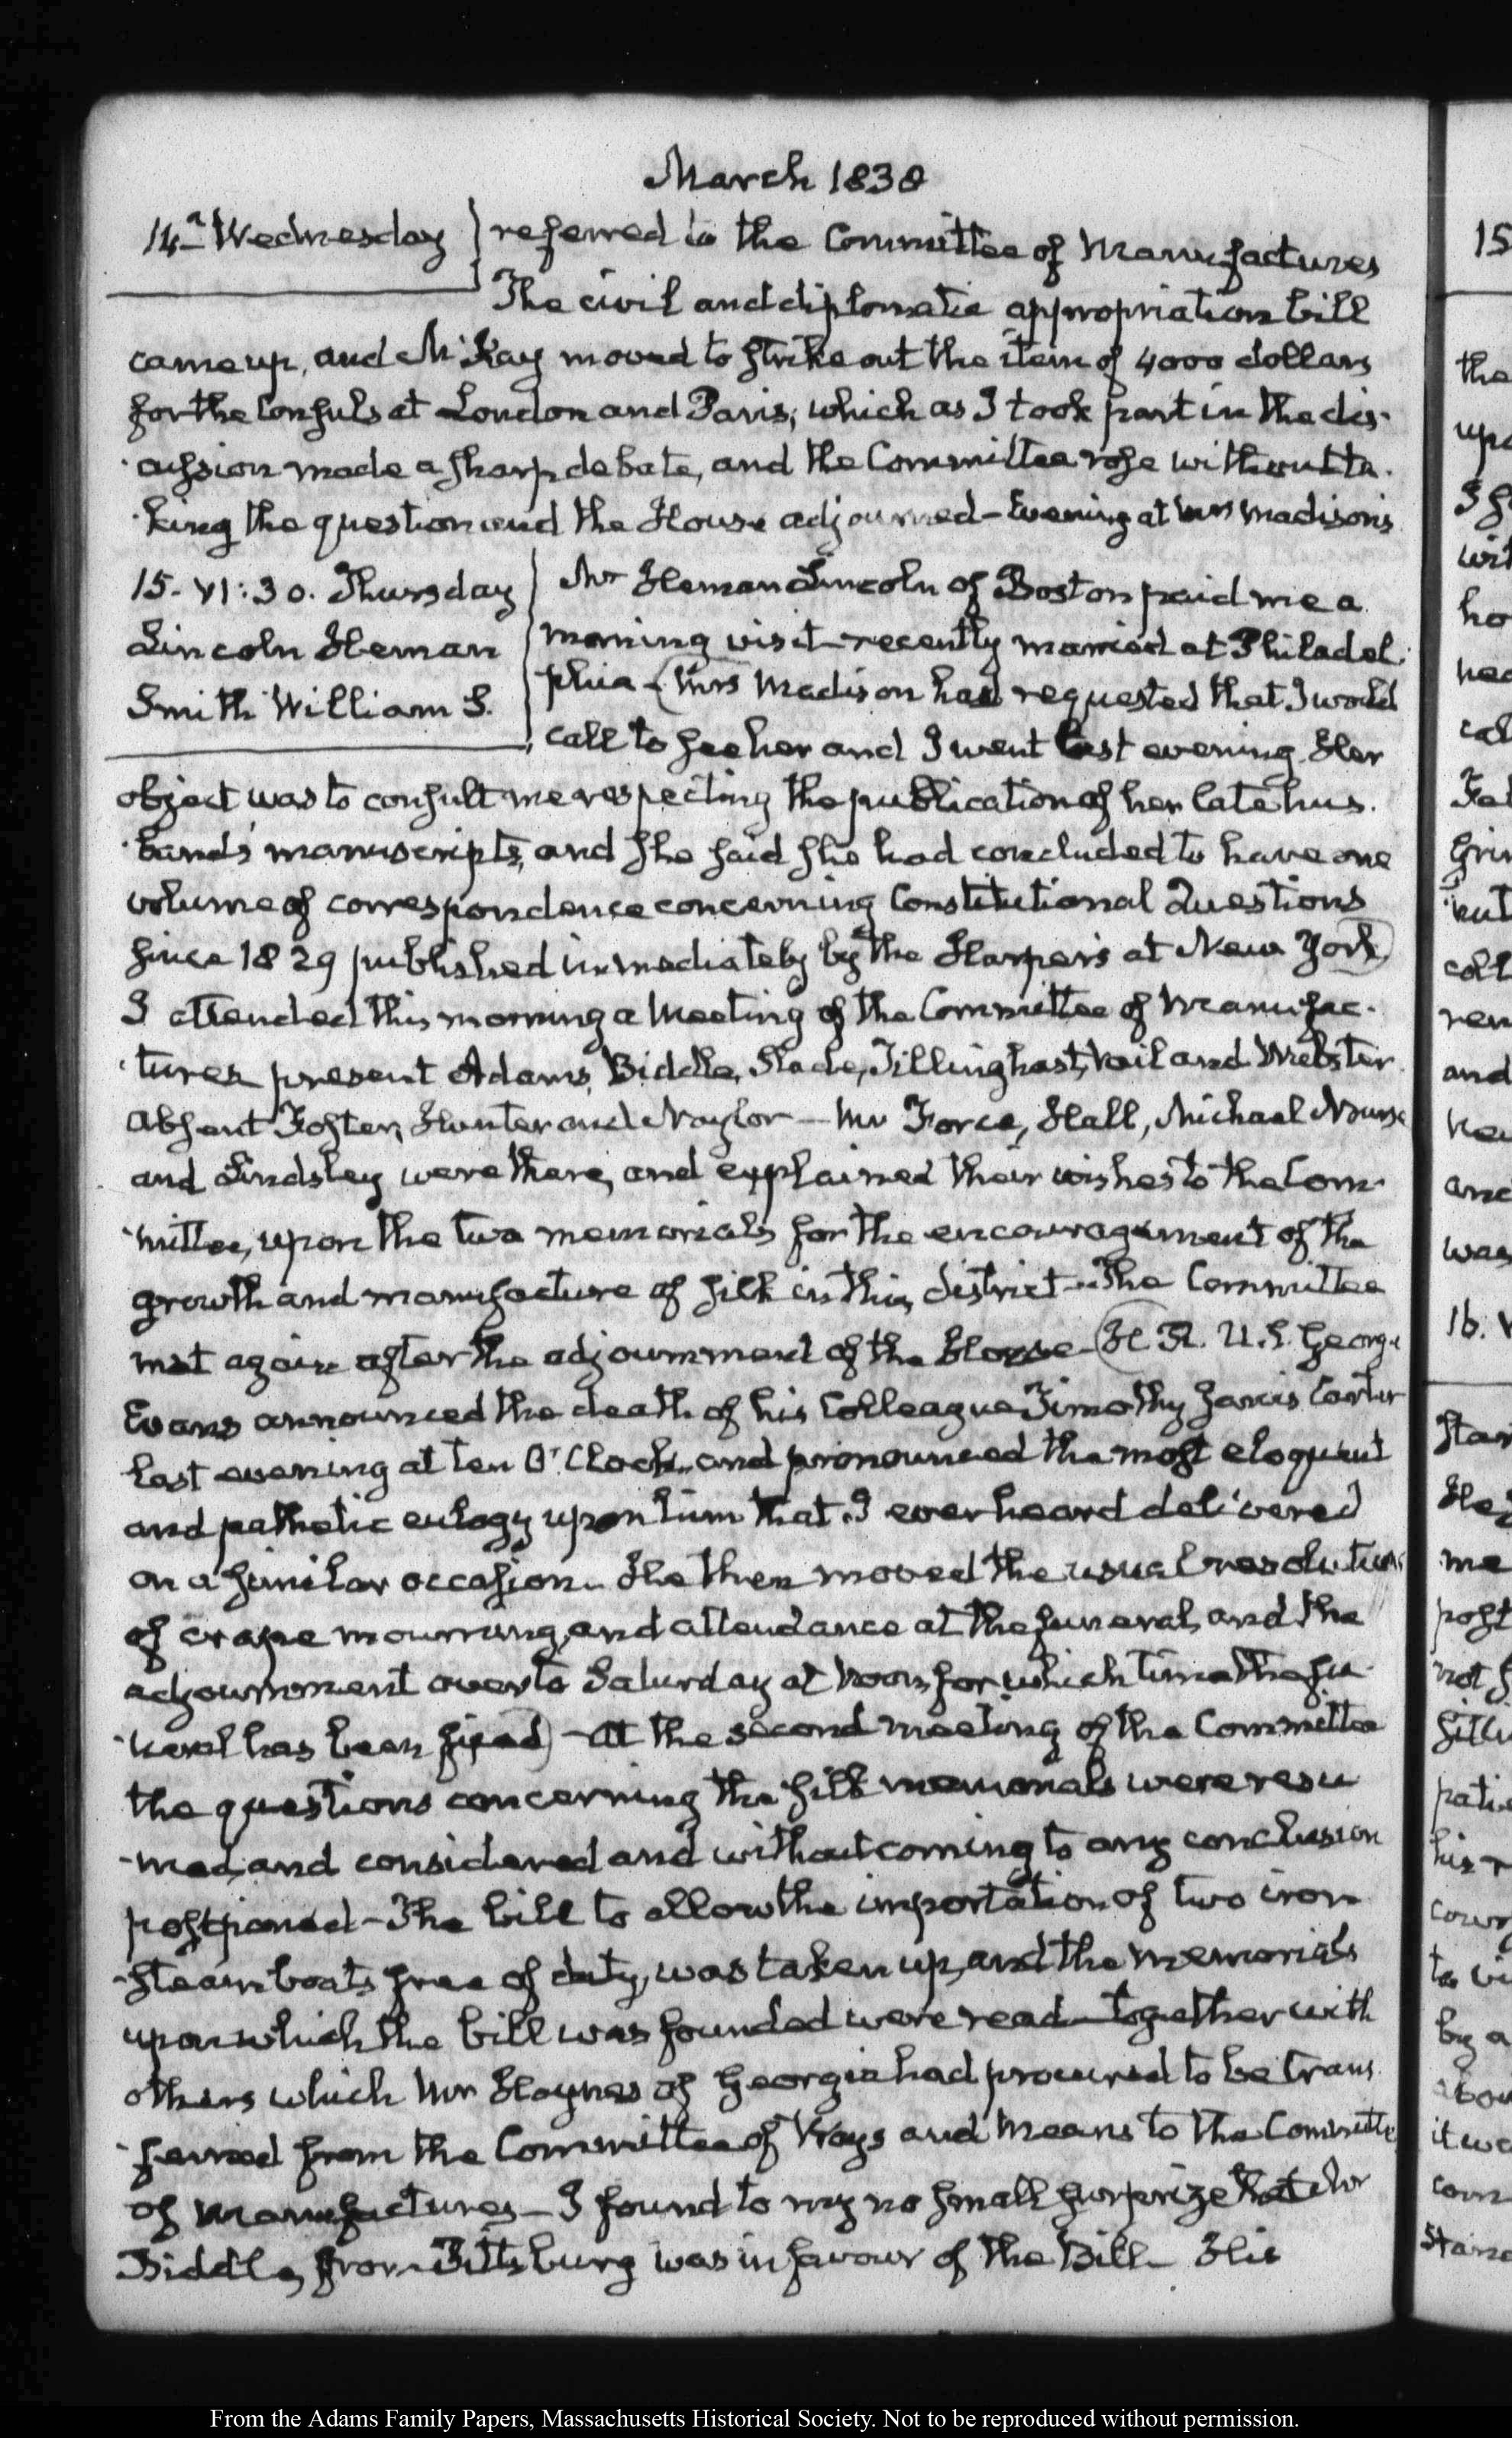 March 1838
14. Wednesday
referred to the Committee of Manufactures
The civil and diplomatic appropriation bill
came up, and McKay moved to strike out the item of 4000 dollars
for the Consuls at London and Paris; which as I took part in the dis-
-cussion made a sharp debate, and the Committee rose without ta-
-king the question and the House adjourned – Evening at Mrs Madison's
15. VI:30. Thursday
Lincoln Heman
Smith William S.
Mr Heman Lincoln of Boston paid me a
morning visit – recently married at Philadel-
phia – (Mrs Madison had requested that I would
call to see her and I went last evening. Her
object was to consult me respecting the publication of her late hus-
-band's manuscripts, and she said she had concluded to have one
volume of correspondence concerning Constitutional Questions
since 1829 published immediately by the Harpers at New York)
I attended this morning a Meeting of the Committee of Manufac-
-tures present Adams, Biddle, Slade, Tillinghast, Vail and Webster
absent Foster, Hunter and Naylor – Mr Force, Hall, Michael Nourse
and Lindsley were there, and explained their wishes to the Com-
-mittee, upon the two memorials for the encouragement of the
growth and manufacture of silk in this district – The Committee
met again after the adjournment of the House – (H. R. U. S. George
Evans announced the death of his Colleague Timothy Jarvis Carter
last evening at ten O'Clock, and pronounced the most eloquent
and pathetic eulogy upon him that I ever heard delivered
on a similar occasion. He then moved the usual resolutions
of crape mourning, and attendance at the funeral, and the
adjournment over to Saturday at Noon, for which time the fu-
-neral has been fixed) – At the second meeting of the Committee
the questions concerning the silk memorials were resu
-med, and considered and without coming to any conclusion
postponed – The bill to allow the importation of two iron
steam boats free of duty, was taken up, and the memorials
upon which the bill was founded were read – together with
others which Mr Haynes of Georgia had procured to be trans-
-ferred from the Committee of Ways and Means to the Committee
of Manufactures – I found to my no small surprize that Mr
Biddle, from Pittsburg was in favour of the Bill – His
15
the
wit
ho
and
was
16. V
me
post
not
by a
com
From the Adams Family Papers, Massachusetts Historical Society. Not to be reproduced without permission.